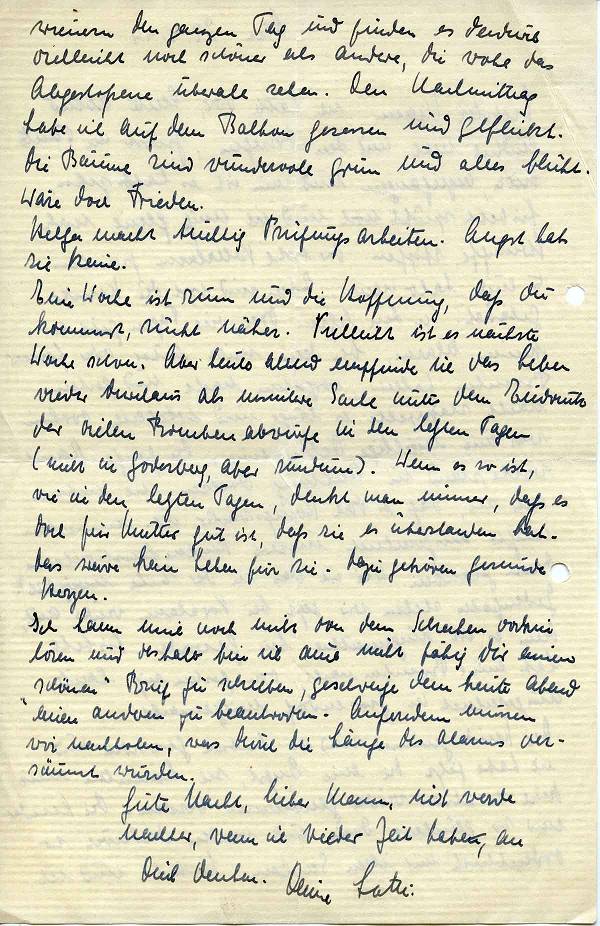 wienern den ganzen Tag und finden es dadurch
vielleicht noch schöner als andere, die wohl das
Abgestoßene überall sehen. Den Nachmittag
habe ich auf dem Balkon gesessen und geflickt.
Die Bäume sind wundervoll grün und alles blüht.
Wäre doch Frieden.
Helga macht fleißig Prüfungsarbeiten. Angst hat
sie keine.
Eine Woche ist rum und die Hoffnung, daß du
kommst, rückt näher. Vielleicht ist es nächste
Woche schon. Aber heute abend empfinde ich das Leben
wieder durchaus als unsichere Sache unter dem Eindruck
der vielen Bombenabwürfe in den letzten Tagen
(nicht in Godesberg, aber rundum). Wenn es so ist,
wie in den letzten Tagen, denkt man immer, daß es
doch für Mutter gut ist, daß sie es überstanden hat.
das wäre kein Leben für sie. Dazu gehören gesunde
Herzen.
Ich kann mich noch nicht von dem Schrecken vorhin
lösen und deshalb bin ich auch nicht fähig Dir einen
"schönen" Brief zu schreiben, geschweige denn heute Abend
einen anderen zu beantworten. Außerdem müssen
wir nachholen, was durch die Länge des Alarms ver-
säumt wurde.
Gute Nacht, lieber Mann, ich werde
nachher, wenn ich wieder Zeit habe, an
Dich denken. Deine